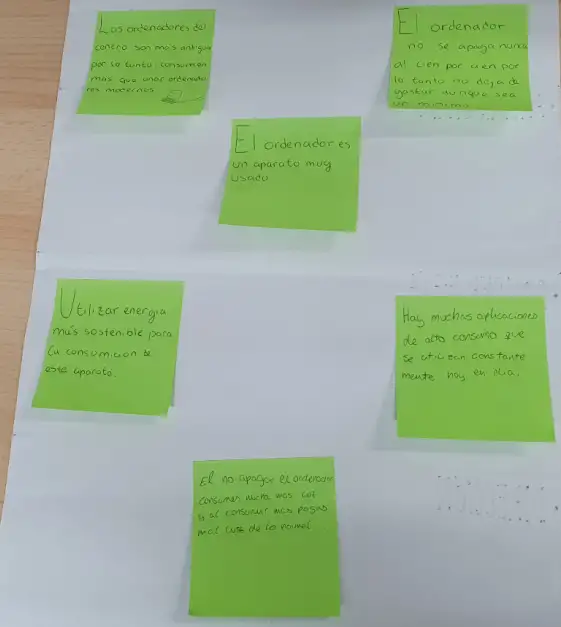 Los ordenadores del
centro son mas antiguos
por lo tanto consumen
mas que unos ordenado
res modernos
El ordenador
no se apaga nunca
al cien por cien por
lo tanto no deja de
gastar aunque sea
un minimo
El ordenador es
un aparato muy
usado
Utilizar energia
más sostenible para
la consumicion de
este aparato.
Hay muchas aplicaciones
de alto consumo que
se utilizan constante
mente hoy en dia.
El no apagar el ordenador
consumes mucha mas luz
y si consumes mas pagas
mas luz de lo normal